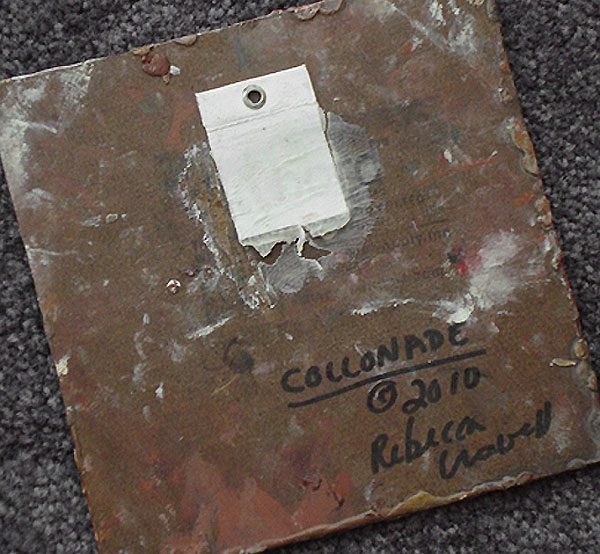 COLLONADE
© 2010
Rebecca
Crowell